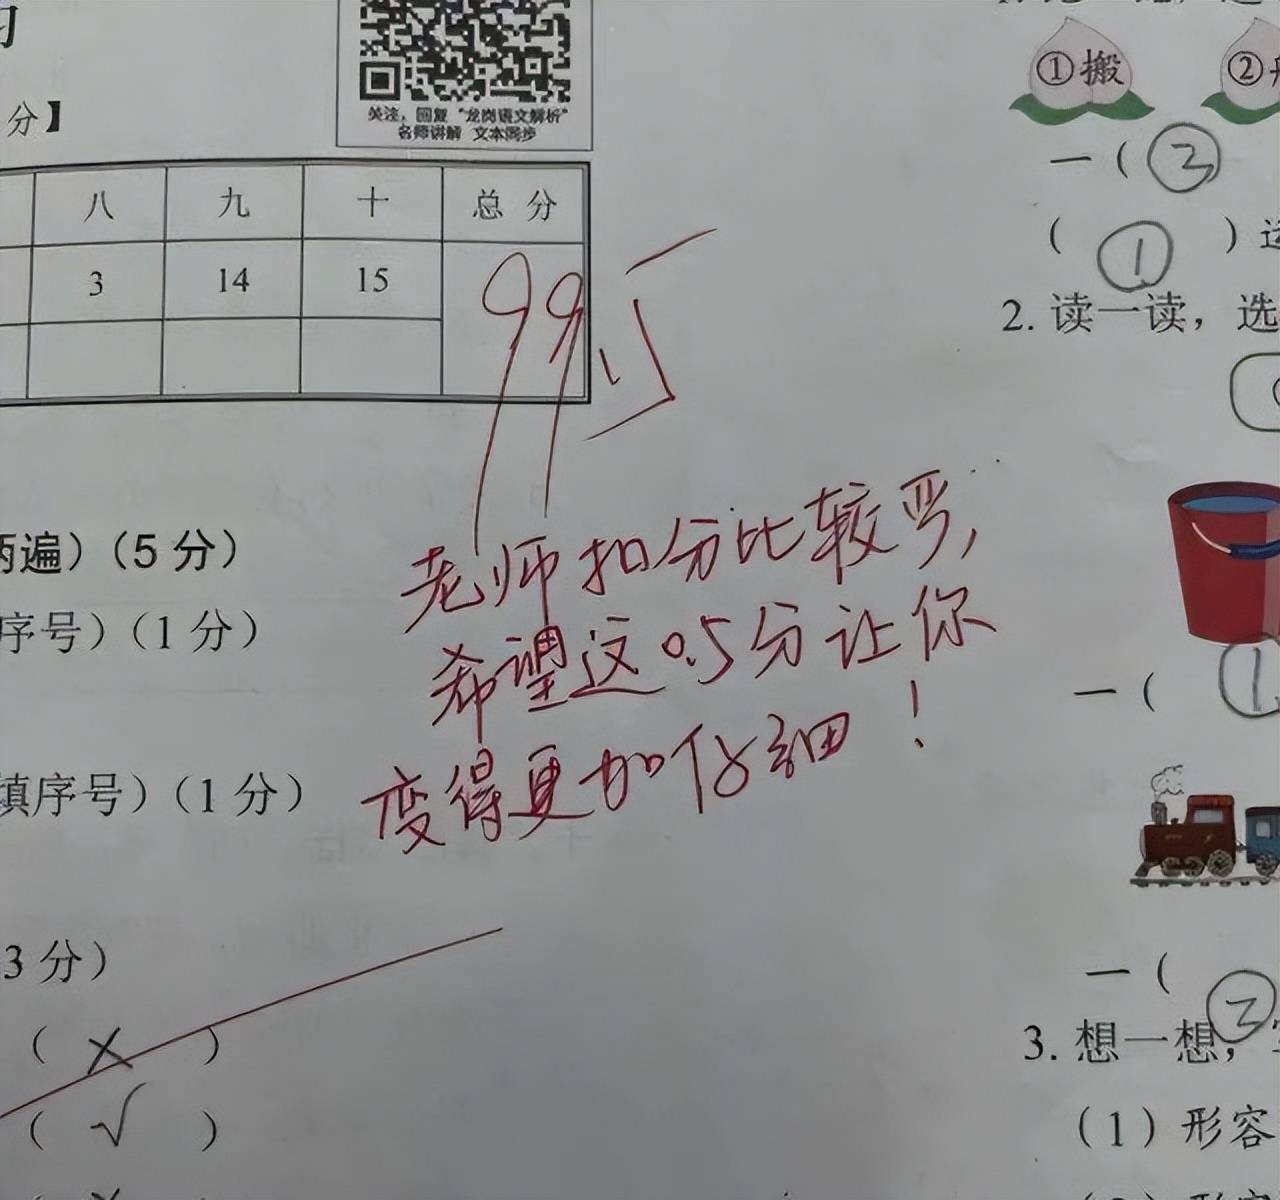 习
分】
关注，回复“龙岗语文解析”
名师讲解 文本同步
八 九 十 总 分
3 14 15
99.5
老师扣分比较严,
希望这0.5分让你
变得更加仔细！
两遍）（5 分）
序号）（1 分）
填序号）（1 分）
3 分）
（ × ）
（ √ ）
①搬 ②
一（ ②
（ ① ）运
2. 读一读，选
一（ ①
一（ ②
3. 想一想，
（1）形容